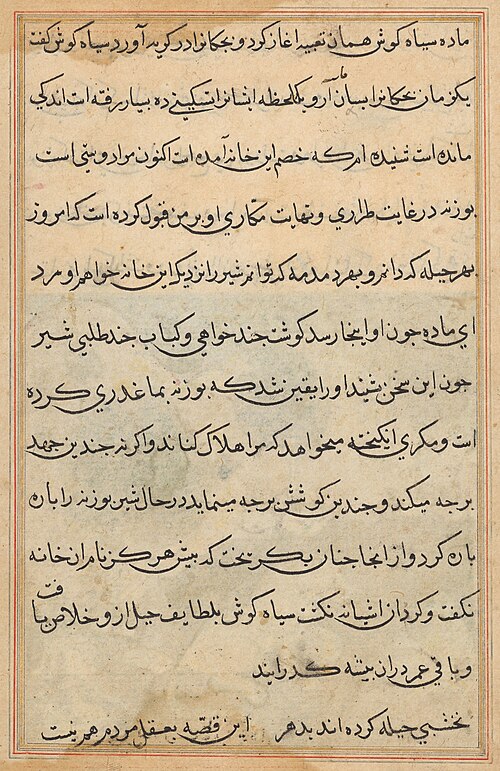 ماده سیاه کوش همان تعبیه اغاز کرد و بچکانرا در کریه آورد سیاه کوش کفت
بکو مان بچکانرا بسان آر و یک لحظه ایشانرا تسکینی ده بسیار رفته است اندکی
مانده است شنیده ام که خصم این خانه آمده است اکنون مراد و سیتی است
بوزنه در غایت طراری و نهایت مکاری او بر من قبول کرده است که امروز
بهر حیله که دانم و بهر دمدمه که توانم شیر را نزدیک این خانه خواهم اورد
ای ماده جون او اینجا رسد کوشت جند خواهی و کباب جند طلبی شیر
جون این سخن بشنید او را یقین شد که بوزنه بما غدری کرده
است و مکری انکیخته میخواهد که مرا هلاک کناند و اکرنه جندین جهد
بر جه میکند و جندین کوشش بر جه مینماید در حال شیر بوزنه را باره
باره کرد و از انجا جنان بکریخت که بیش هرکز نام ان خانه
نکفت و کرد ان اشیانه نکشت سیاه کوش بلطایف حیل ازو خلاص یافت
و باقی عمر دران بیشه کذرانید
نخشبی حیله کرده اند بدهر این قصه بعقل مردم هم نیست